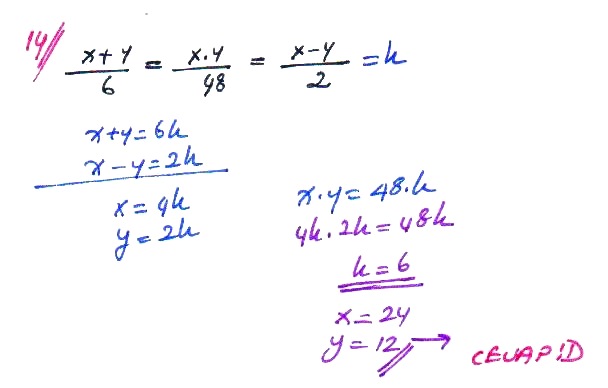 14// (x+y)/6 = (x.y)/48 = (x-y)/2 = k
x+y=6k
x-y=2k
x=4k
y=2k
x.y=48.k
4k.2k=48k
k=6
x=24
y=12 → CEVAP:D